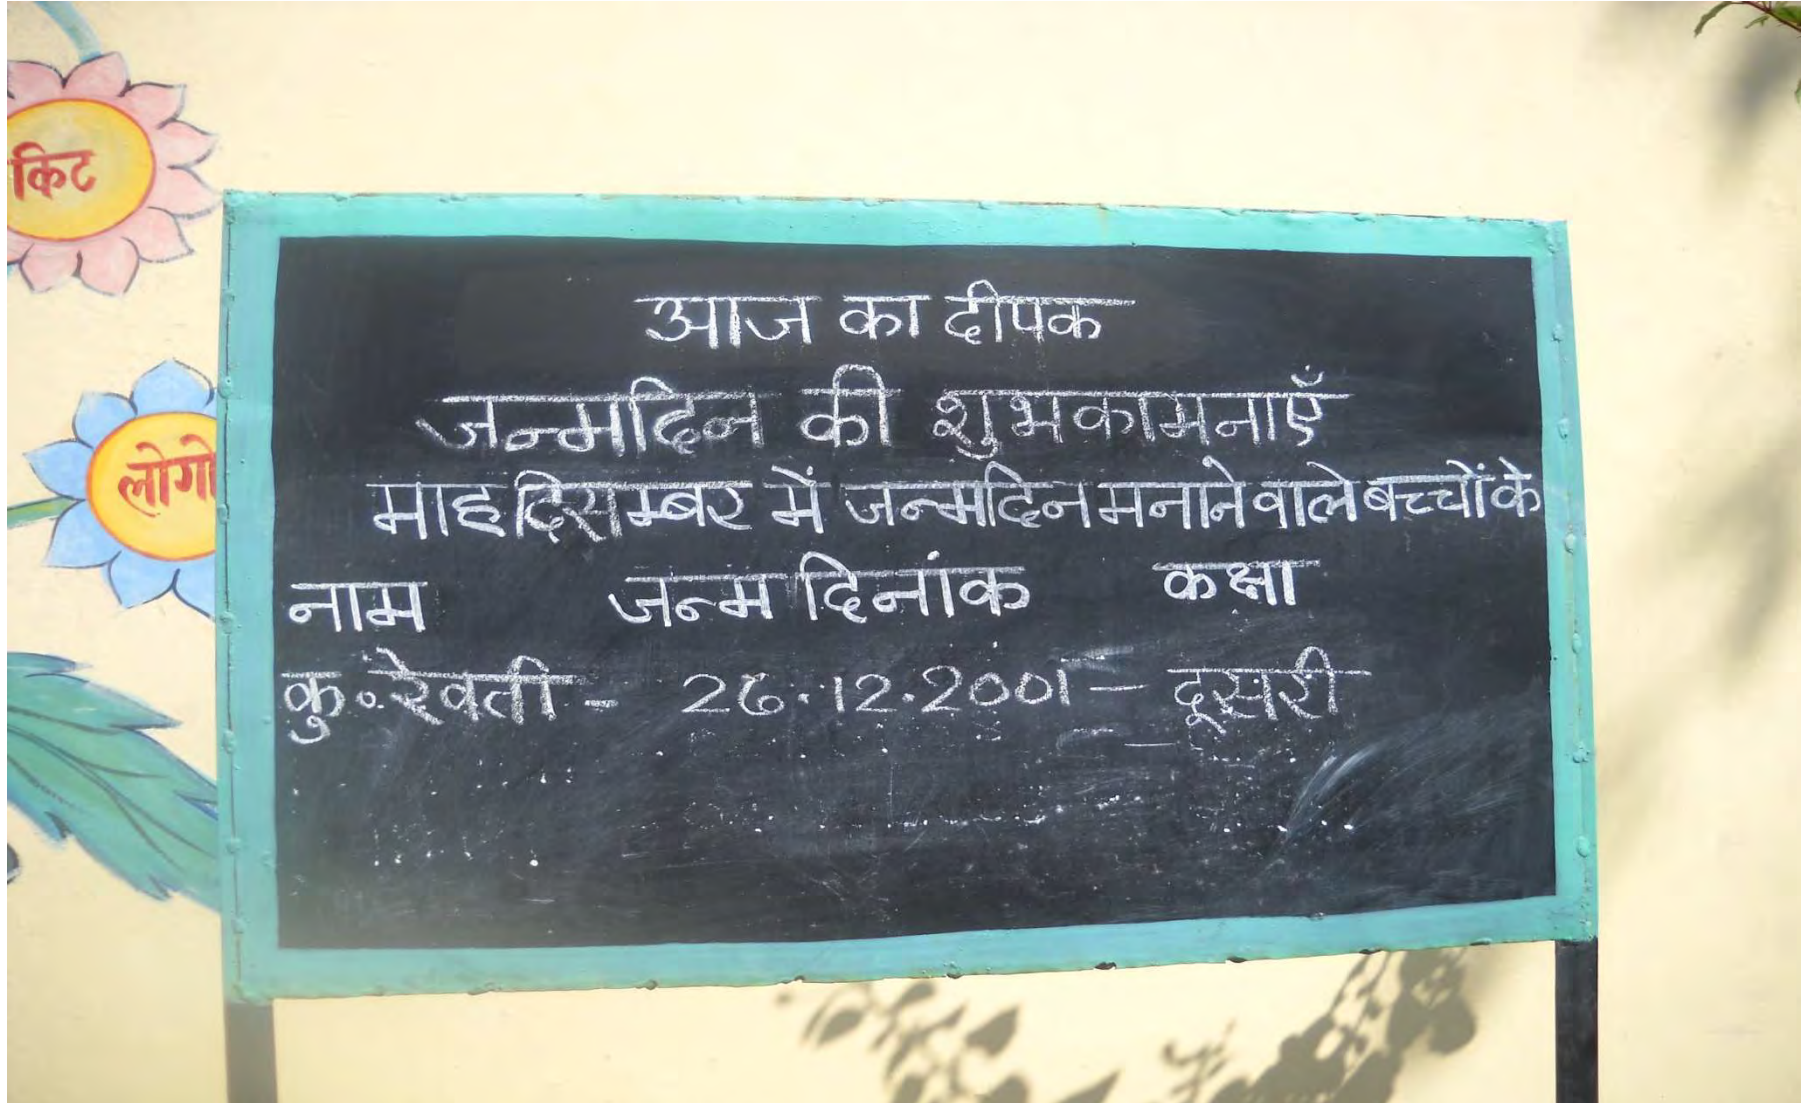 किट
आज का दीपक
जन्मदिन की शुभकामनाएँ
लोगो
माह दिसम्बर में जन्मदिन मनाने वाले बच्चों के
नाम जन्म दिनांक कक्षा
कु॰ रेवती - 26.12.2001 - दूसरी